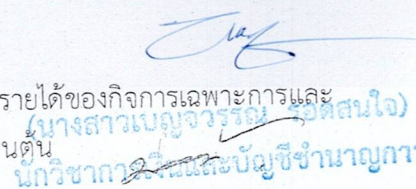 รายได้ของกิจการเฉพาะการและ
(นางสาวเบญจวรรณ รอดสนใจ)
นต้น
นักวิชาการเงินและบัญชีชำนาญการ